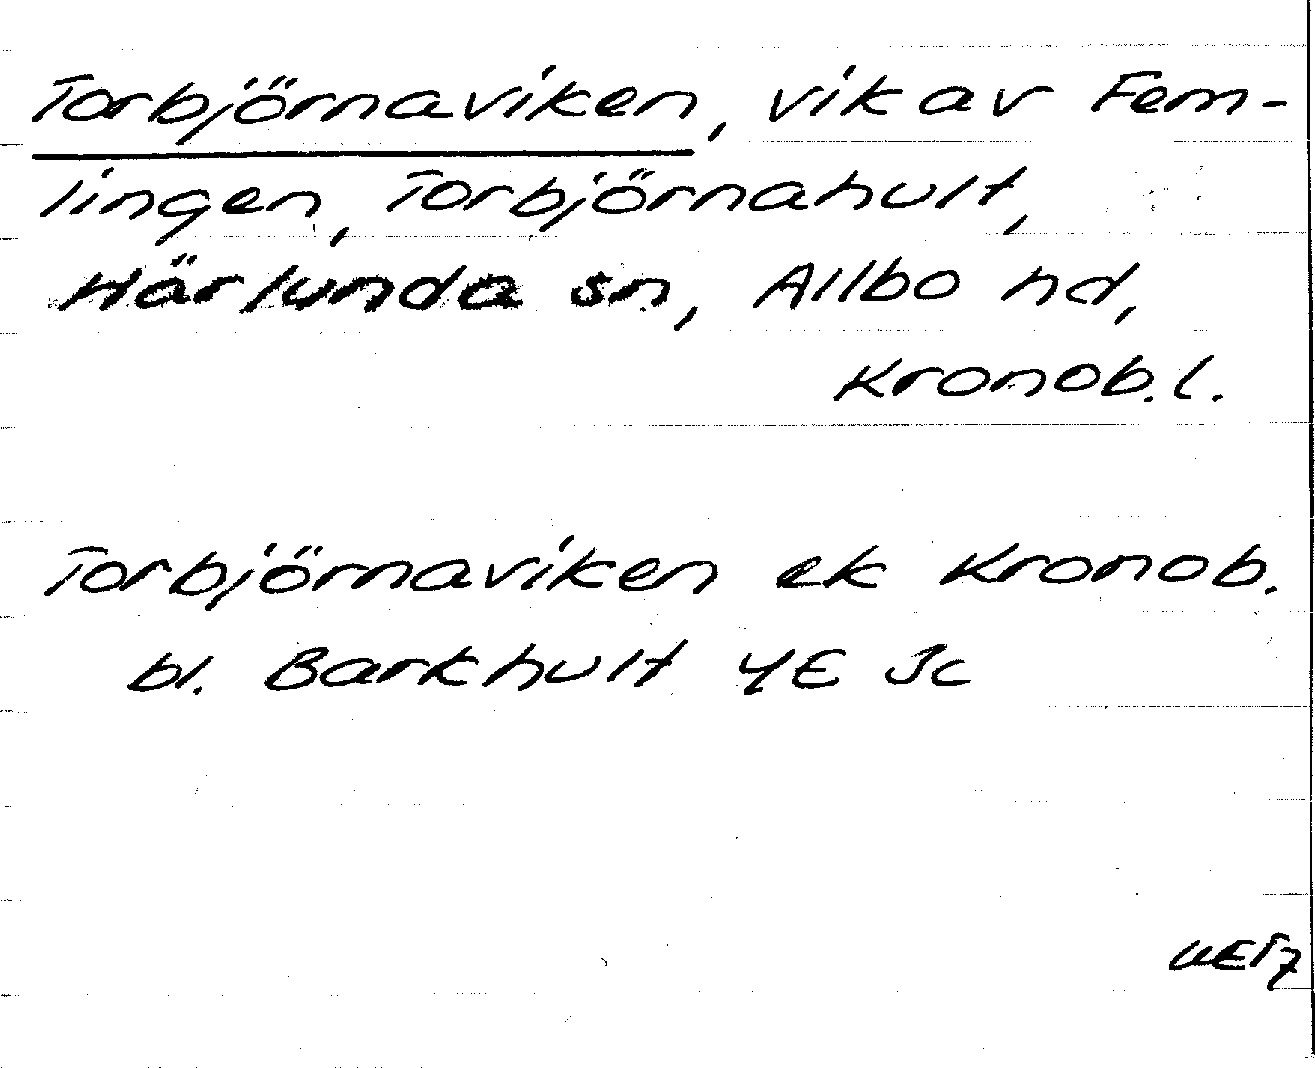 Torbjörnaviken, vik av Fem-
lingen, Torbjörnahult,
Härlunda sn, Allbo hd,
Kronob. l.
Torbjörnaviken ek Kronob.
bl. Barkhult 4E Jc